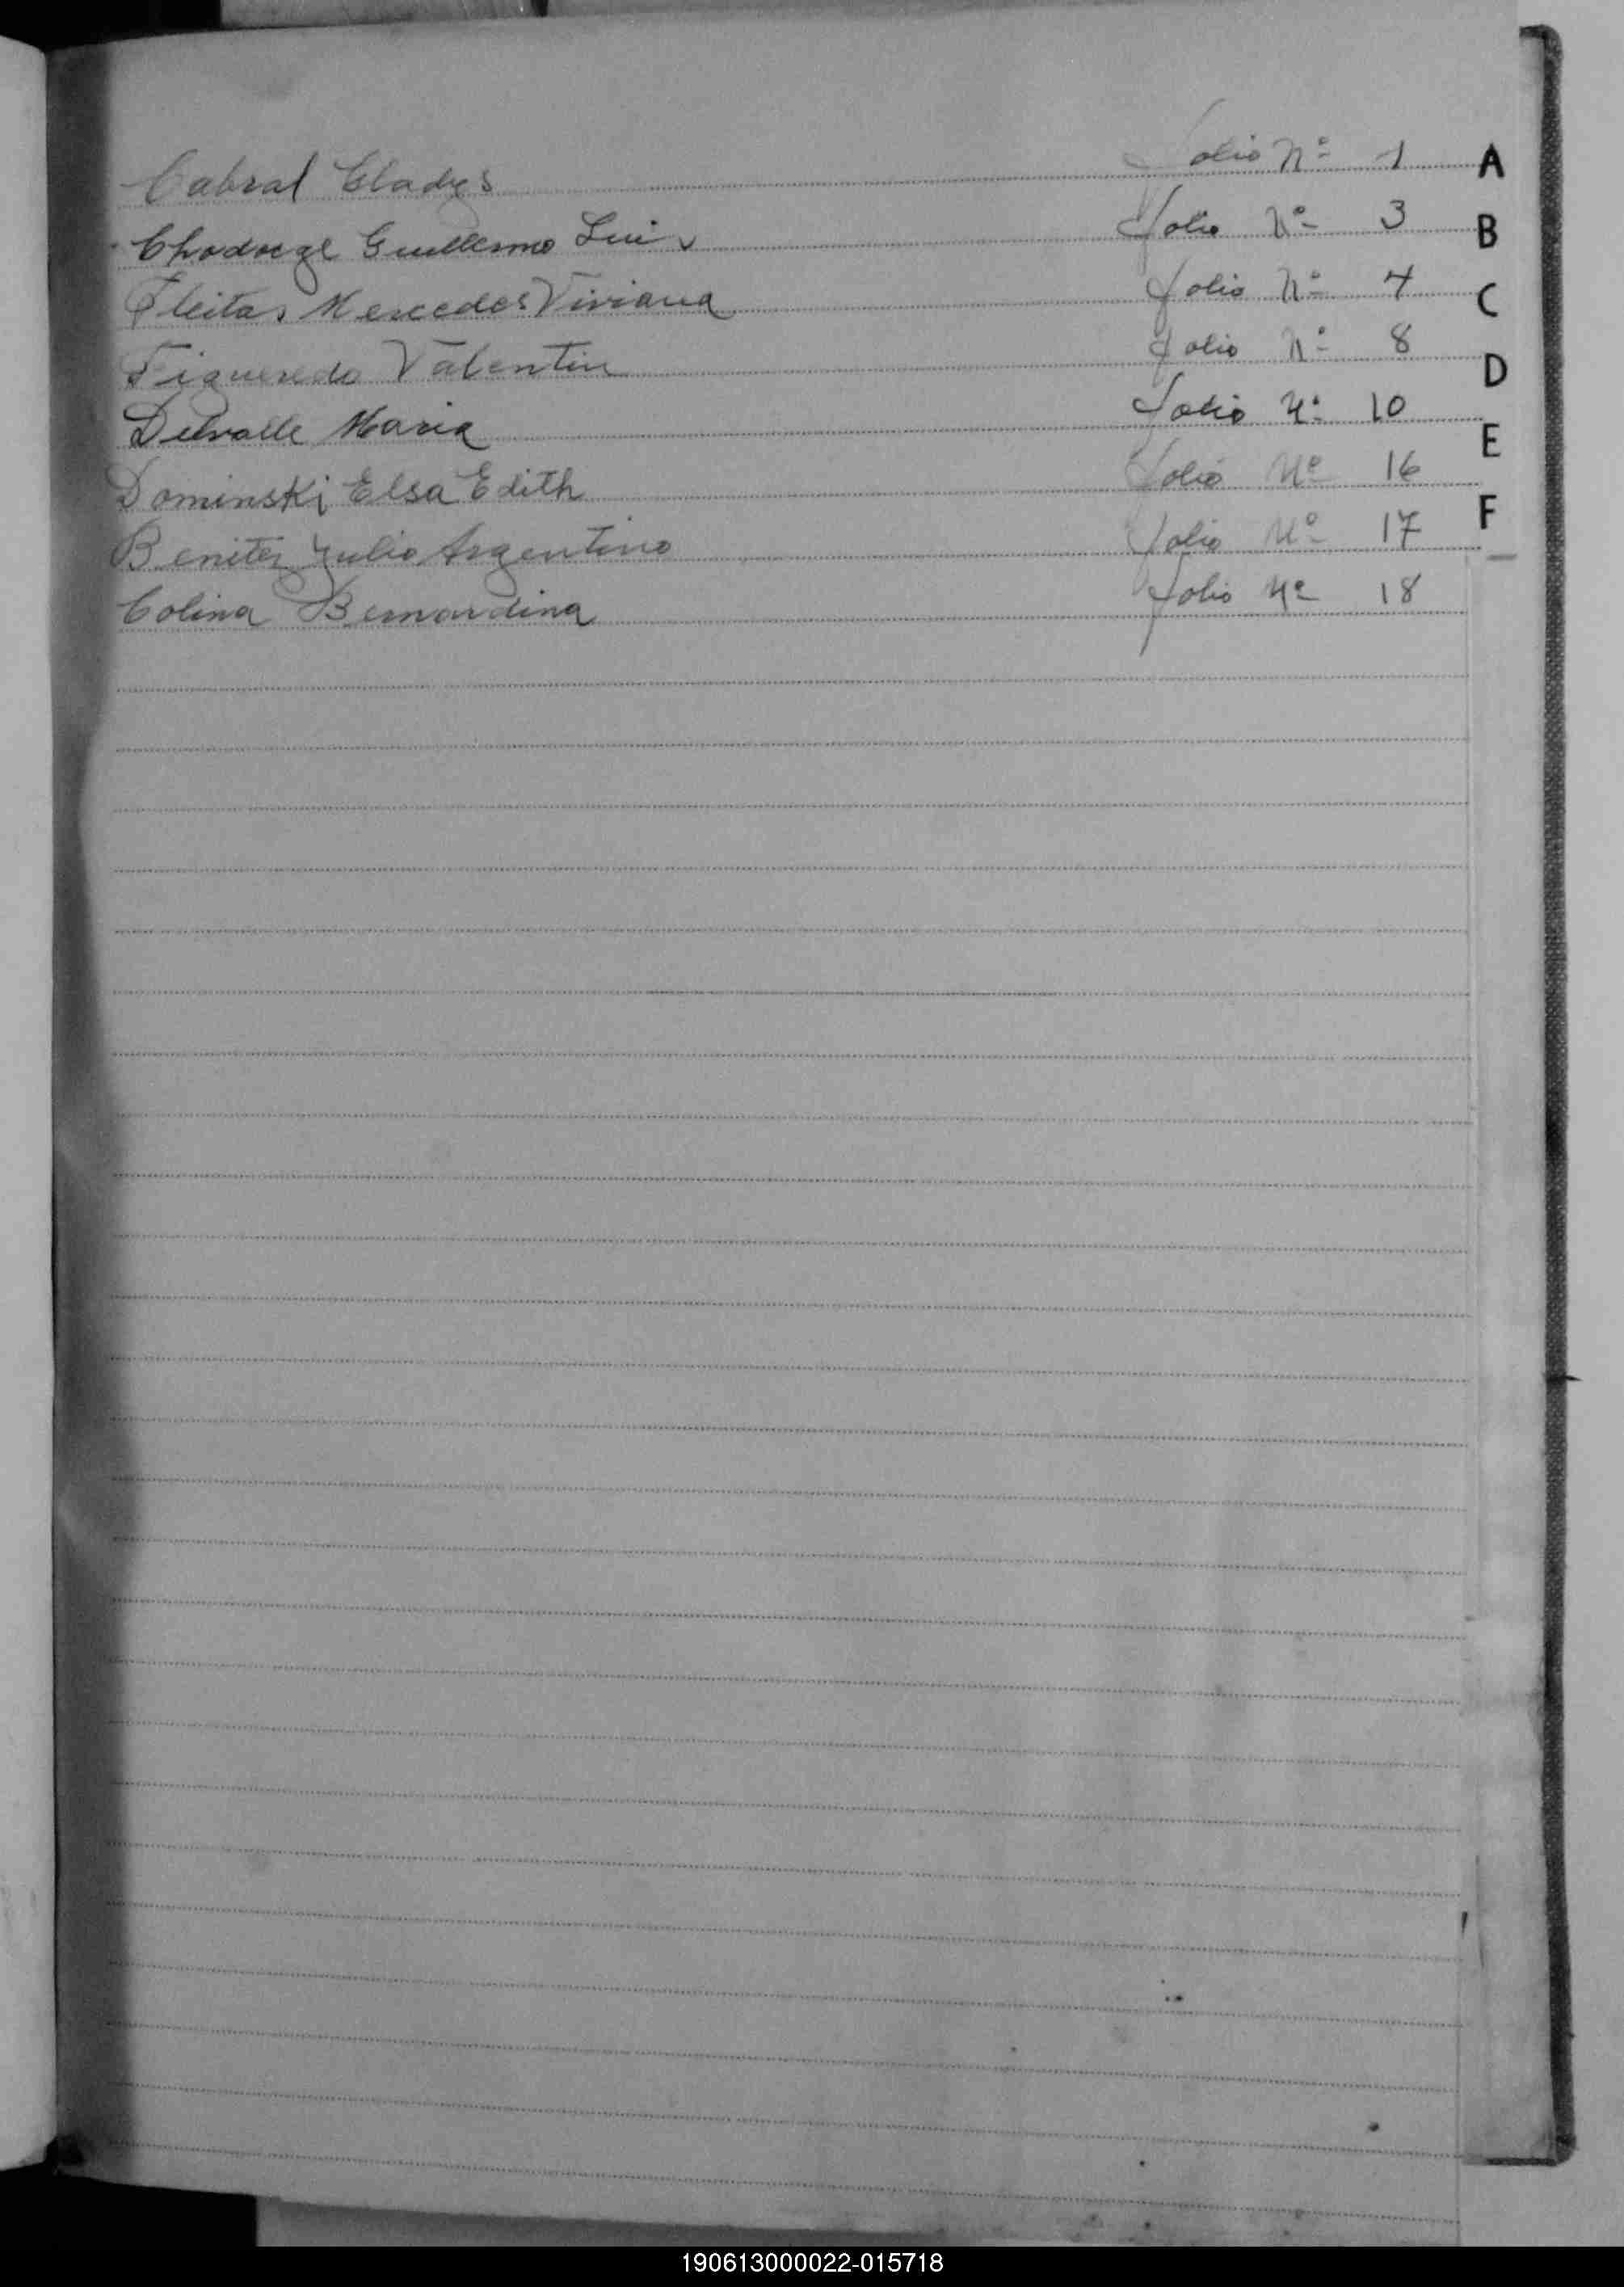 Cabral Gladys Folio Nº 1 A
Guillermo Luis Folio Nº 3 B
Fleitas Mercedes Viviana Folio Nº 4 C
Figueredo Valentin Folio Nº 8 D
Delvalle Maria Folio Nº 10 E
Dominski Elsa Edith Folio Nº 16 F
Benitez Julio Argentino Folio Nº 17
Colina Bernardina Folio Nº 18
190613000022-015718